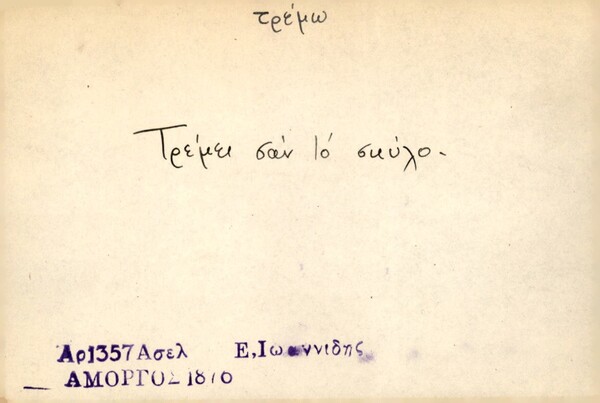 τρέμω
Τρέμει σάν τό σκύλο.
Αρ1357Ασελ Ε,Ιωαννιδης
ΑΜΟΡΓΟΣ 1876